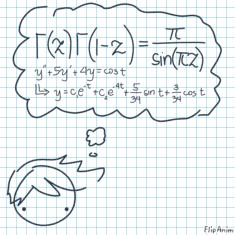 Γ(z)Γ(1-z) = π/sin(πz)
y"+5y'+4y=cost
↳ y=c₁e⁻ᵗ+c₂e⁻⁴ᵗ+5/34 sint+3/34 cost
FlipAnim